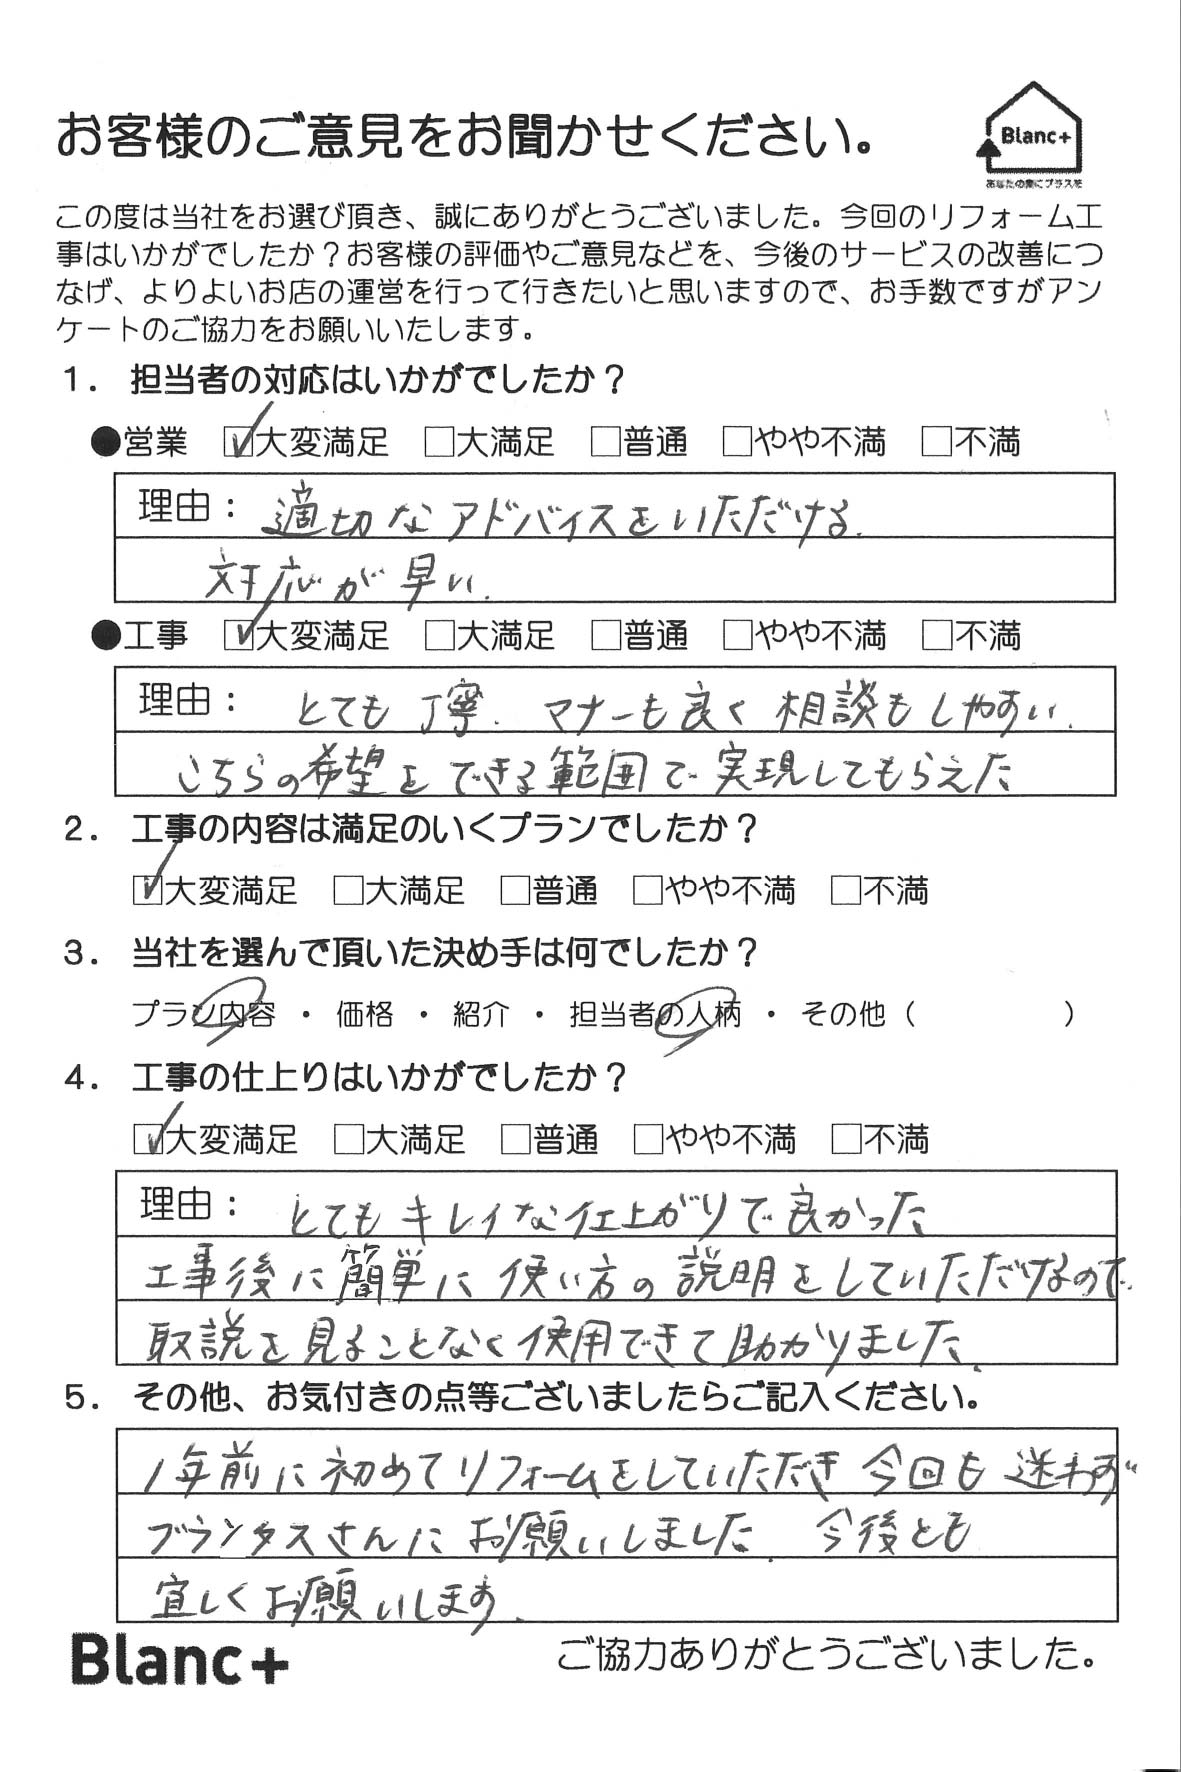 お客様のご意見をお聞かせください。
Blanc+
あなたの家にプラスを
この度は当社をお選び頂き、誠にありがとうございました。今回のリフォーム工
事はいかがでしたか？お客様の評価やご意見などを、今後のサービスの改善につ
なげ、よりよいお店の運営を行って行きたいと思いますので、お手数ですがアン
ケートのご協力をお願いいたします。
1. 担当者の対応はいかがでしたか？
●営業 ☑大変満足 □大満足 □普通 □やや不満 □不満
理由： 適切なアドバイスをいただける.
対応が早い.
●工事 ☑大変満足 □大満足 □普通 □やや不満 □不満
理由： とても丁寧. マナーも良く相談もしやすい.
こちらの希望をできる範囲で実現してもらえた
2. 工事の内容は満足のいくプランでしたか？
☑大変満足 □大満足 □普通 □やや不満 □不満
3. 当社を選んで頂いた決め手は何でしたか？
プラン内容 ・ 価格 ・ 紹介 ・ 担当者の人柄 ・ その他（ ）
4. 工事の仕上りはいかがでしたか？
☑大変満足 □大満足 □普通 □やや不満 □不満
理由： とてもキレイな仕上がりで良かった
工事後に簡単に使い方の説明をしていただけるので.
取説を見ることなく使用できて助かりました.
5. その他、お気付きの点等ございましたらご記入ください。
1年前に初めてリフォームをしていただき 今回も迷わず
ブランタスさんにお願いしました. 今後とも
宜しくお願いします.
Blanc+
ご協力ありがとうございました。